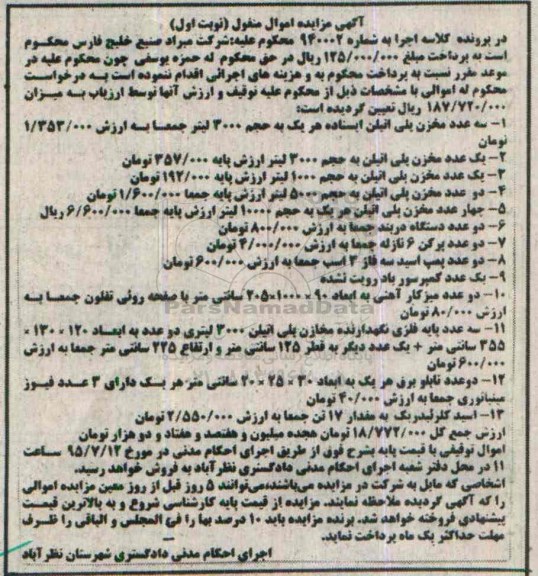 آگهی مزایده اموال منقول (نوبت اول)
در پرونده کلاسه اجرا به شماره ۹۴۰۰۰۲ محکوم علیه:شرکت میراد صنیع خلیج فارس محکوم
است به پرداخت مبلغ ۱۲۵/۰۰۰/۰۰۰ریال در حق محکوم له حمزه یوسفی چون محکوم علیه در
موعد مقرر نسبت به پرداخت محکوم به و هزینه های اجرائی اقدام ننموده است به درخواست
محکوم له اموالی با مشخصات ذیل از محکوم علیه توقیف و ارزش آنها توسط ارزیاب به میزان
۱۸۷/۷۲۰/۰۰۰ ریال تعیین گردیده است:
۱- سه عدد مخزن پلی اتیلن ایستاده هر یک به حجم ۳۰۰۰ لیتر جمعا به ارزش ۱/۳۵۳/۰۰۰
تومان
۲- یک عدد مخزن پلی اتیلن به حجم ۳۰۰۰ لیتر ارزش پایه ۳۵۷/۰۰۰ تومان
۳- یک عدد مخزن پلی اتیلن به حجم ۱۰۰۰ لیتر ارزش پایه ۱۹۲/۰۰۰ تومان
۴- دو عدد مخزن پلی اتیلن به حجم ۵۰۰۰ لیتر ارزش پایه جمعا ۱/۶۰۰/۰۰۰ تومان
۵- چهار عدد مخزن پلی اتیلن هر یک به حجم ۱۰۰۰۰ لیتر ارزش پایه جمعا ۶/۶۰۰/۰۰۰ ریال
۶- دو عدد دستگاه دربند جمعا به ارزش ۸۰۰/۰۰۰ تومان
۷- دو عدد پرکن ۶ نازله جمعا به ارزش ۴/۰۰۰/۰۰۰ تومان
۸- دو عدد پمپ اسید سه فاز ۳ اسب جمعا به ارزش ۶۰۰/۰۰۰ تومان
۹- یک عدد کمپرسور باد رویت نشده
۱۰- دو عدد میزکار آهنی به ابعاد ۹۰ × ۱۰۰۰×۲۰۵ سانتی متر با صفحه روئی تفلون جمعا به
ارزش ۸۰/۰۰۰ تومان
ParsNamadData
۱۱- سه عدد پایه فلزی نگهدارنده مخازن پلی اتیلن ۳۰۰۰ لیتری دو عدد به ابعاد ۱۲۰ × ۱۳۰ ×
۳۵۵ سانتی متر + یک عدد دیگر به قطر ۱۲۵ سانتی متر و ارتفاع ۲۲۵ سانتی متر جمعا به ارزش
۶۰۰/۰۰۰ تومان
۱۲- دوعدد تابلو برق هر یک به ابعاد ۳۰ × ۲۵ × ۲۰ سانتی متر هر یک دارای ۳ عدد فیوز
مینیاتوری جمعا به ارزش ۴۰/۰۰۰ تومان
۱۳- اسید کلرئیدریک به مقدار ۱۷ تن جمعا به ارزش ۲/۵۵۰/۰۰۰ تومان
ارزش جمع کل ۱۸/۷۷۲/۰۰۰ تومان هجده میلیون و هفتصد و هفتاد و دو هزار تومان
اموال توقیفی با قیمت پایه بشرح فوق از طریق اجرای احکام مدنی در مورخ ۹۵/۷/۱۲ ساعت
۱۱ در محل دفتر شعبه اجرای احکام مدنی دادگستری نظرآباد به فروش خواهد رسید.
اشخاصی که مایل به شرکت در مزایده می‌باشند،می‌توانند ۵ روز قبل از روز معین مزایده اموالی
را که آگهی گردیده ملاحظه نمایند. مزایده از قیمت پایه کارشناسی شروع و به بالاترین قیمت
پیشنهادی فروخته خواهد شد. برنده مزایده باید ۱۰ درصد بها را فی المجلس و الباقی را ظرف
مهلت حداکثر یک ماه پرداخت نماید.
اجرای احکام مدنی دادگستری شهرستان نظرآباد